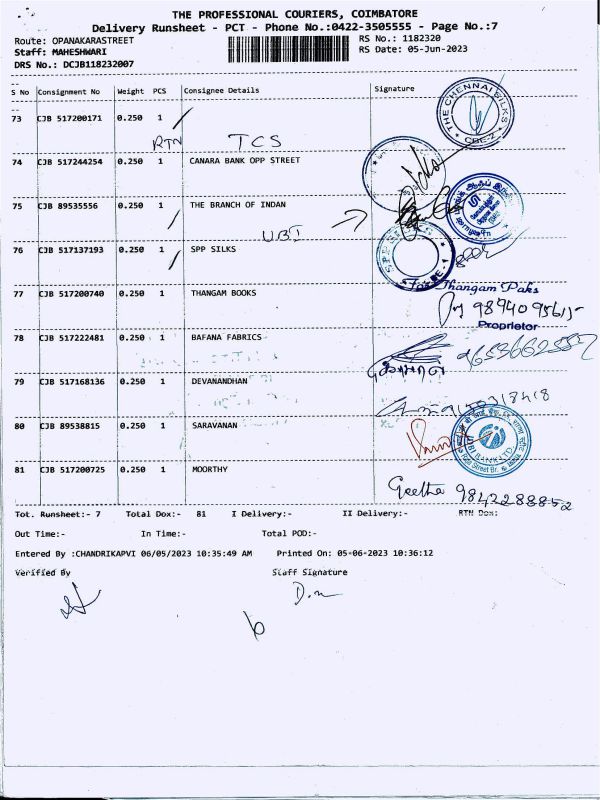 THE PROFESSIONAL COURIERS, COIMBATORE
Delivery Runsheet - PCT - Phone No.:0422-3505555 - Page No.:7
Route: OPANAKARASTREET
RS No.: 1182320
Staff: MAHESHWARI
RS Date: 05-Jun-2023
DRS No.: DCJB118232007
S No Consignment No Weight PCS Consignee Details Signature
73 CJB 517200171 0.250 1
RTN TCS
THE CHENNAI SILKS
CBE-2
74 CJB 517244254 0.250 1 CANARA BANK OPP STREET
75 CJB 89535556 0.250 1 THE BRANCH OF INDAN
UBI
76 CJB 517137193 0.250 1 SPP SILKS
SPP SILKS
77 CJB 517200740 0.250 1 THANGAM BOOKS
For Thangam Paks
Proprietor
78 CJB 517222481 0.250 1 BAFANA FABRICS
79 CJB 517168136 0.250 1 DEVANANDHAN
80 CJB 89538815 0.250 1 SARAVANAN
81 CJB 517200725 0.250 1 MOORTHY
Geetha 9842288852
Tot. Runsheet:- 7 Total Dox:- 81 I Delivery:- II Delivery:- RTN Dox:
Out Time:- In Time:- Total POD:-
Entered By :CHANDRIKAPVI 06/05/2023 10:35:49 AM Printed On: 05-06-2023 10:36:12
Verified By Staff Signature